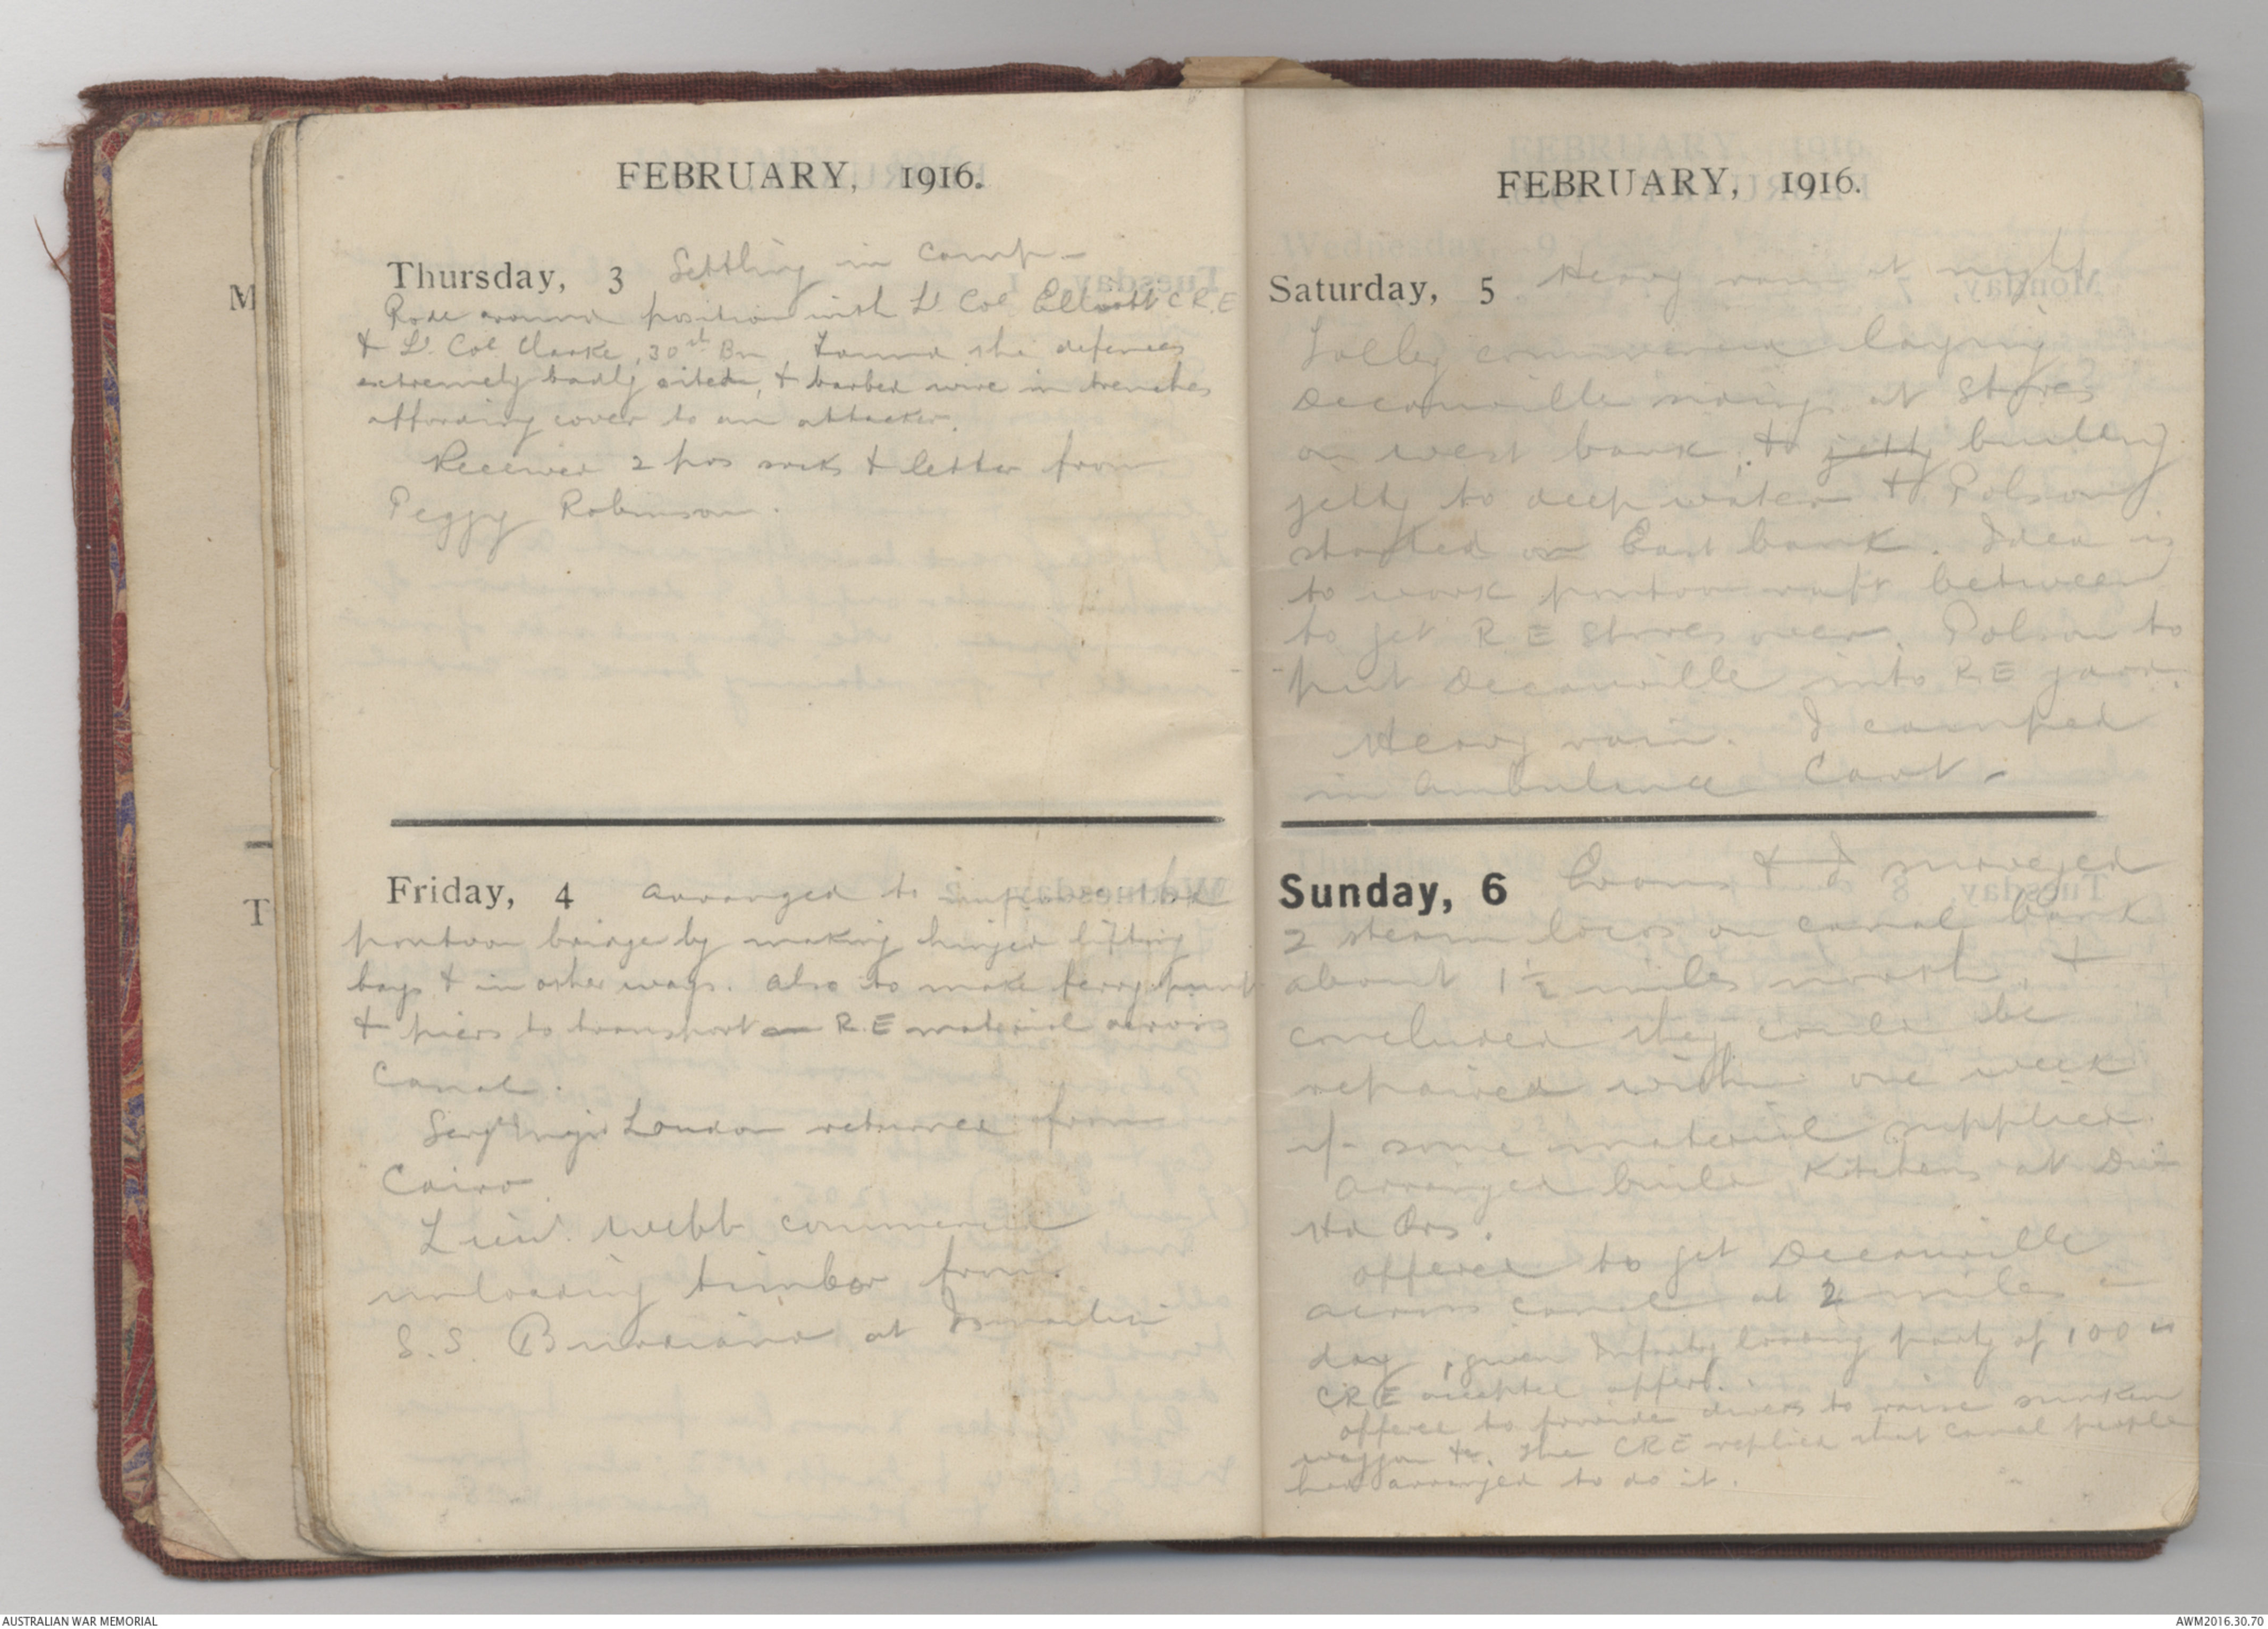 FEBRUARY, 1916.
Thursday, 3 Settling in camp -
Rode around position with Lt Col Elliott C.R.E
& Lt. Col Clarke, 30th Bn, Found the defences
extremely badly sited, & barbed wire in trenches
affording cover to an attacker.
Received 2 prs socks & letter from
Peggy Robinson.
Friday, 4 Arranged to improve
pontoon bridge by making hinged lifting
bays & in other ways. Also to make ferry punt
& piers to transport R.E material across
Canal.
Sergt Major London returned from
Cairo
Lieut. Webb commenced
unloading timber from
S.S. at Ismailia
FEBRUARY, 1916.
Saturday, 5 Heavy rain at night
Jolley commenced laying
Decauville siding at Stores
on west bank, & jetty building
jetty to deep water & Polson
started on East bank. Idea is
to work pontoon raft between
to get R E Stores over. Polson to
put Decauville into R.E yard.
Heavy rain. I camped
in Ambulance Cart -
Sunday, 6 Evans & I surveyed
2 steam locos on canal bank
about 1½ miles north, &
concluded they could be
repaired within one week
if some material supplied.
Arranged build kitchens at Div
Hd Qrs.
Offered to get Decauville
across canal at 2 miles a
day, given Infantry loading party of 100
CRE accepted offer.
Offered to provide divers to raise sunken
waggon &c. The CRE replied that canal people
had arranged to do it.
M
T
AUSTRALIAN WAR MEMORIAL
AWM2016.30.70